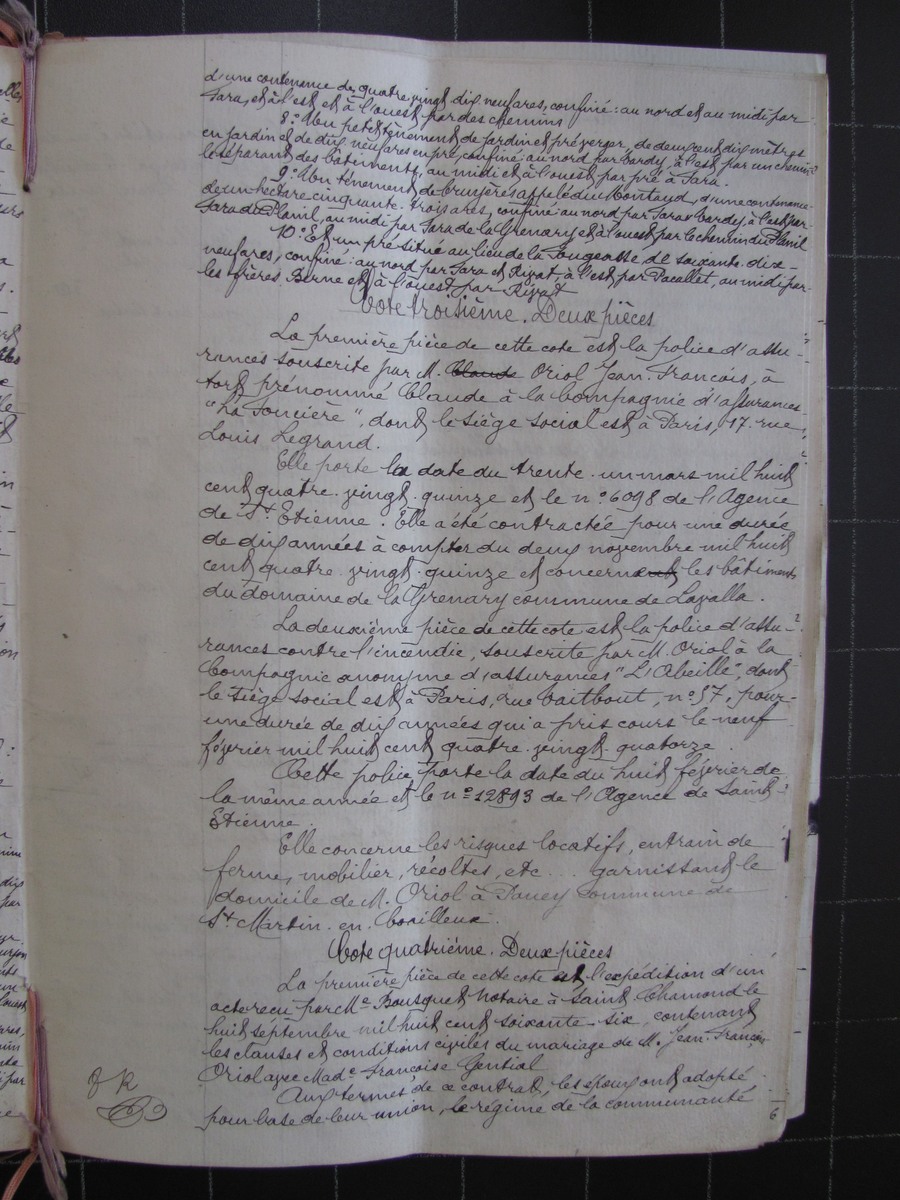 d'une contenance de quatre vingt dix neuf ares, confiné: au nord et au midi par
Fara, et à l'est et à l'ouest par des chemins
8.° Un petit ténement de jardin et pré verger, de deux cent dix mètres
en jardin et de dix neuf ares en pré, confiné au nord par Cardy, à l'est par un chemin
le séparant des bâtiments, au midi et à l'ouest par pré à Fara.
9.° Un ténement de bruyères appelé du Montaud, d'une contenance
de un hectare cinquante-trois ares, confiné: au nord par Fara et Cardy, à l'est par
Fara de Planil, au midi par Fara de la Grenary et à l'ouest par le chemin du Planil
10.° Et un pré situé au lieu de la Fougeasse de soixante-dix-
neuf ares, confiné: au nord par Fara et Rivat, à l'est par Pacallet, au midi par
les frères Berne et à l'ouest par Rivat
Cote troisième. Deux pièces
La première pièce de cette cote est la police d'assu-
rances souscrite par M. Claude Oriol Jean-François, à
tort prénommé Claude à la Compagnie d'assurances
"La Foncière", dont le siège social est à Paris, 17. rue
Louis Legrand.
Elle porte la date du trente-un mars mil huit
cent quatre-vingt-quinze et le n° 6098 de l'Agence
de St Etienne. Elle a été contractée pour une durée
de dix années à compter du deux novembre mil huit
cent quatre-vingt-quinze et concerne les bâtiments
du domaine de la Grenary commune de Lavalla.
La deuxième pièce de cette cote est la police d'assu-
rances contre l'incendie, souscrite par M. Oriol à la
Compagnie anonyme d'assurances "L'Abeille", dont
le siège social est à Paris, rue Taitbout, n° 57, pour
une durée de dix années qui a pris cours le neuf
février mil huit cent quatre-vingt-quatorze.
Cette police porte la date du huit février de
la même année et le n° 12893 de l'Agence de Saint
Etienne.
Elle concerne les risques locatifs, entrain de
ferme, mobilier, récoltes, etc... garnissant le
domicile de M. Oriol à commune de
St Martin-en-Coailleux.
Cote quatrième. Deux pièces
La première pièce de cette cote est l'expédition d'un
acte reçu par Me Bousquet, Notaire à Saint Chamond le
huit septembre mil huit cent soixante-six, contenant
les clauses et conditions civiles du mariage de M. Jean-François
Oriol avec Made Françoise Gential
Aux termes de ce contrat, les époux ont adopté
pour base de leur union, le régime de la communauté